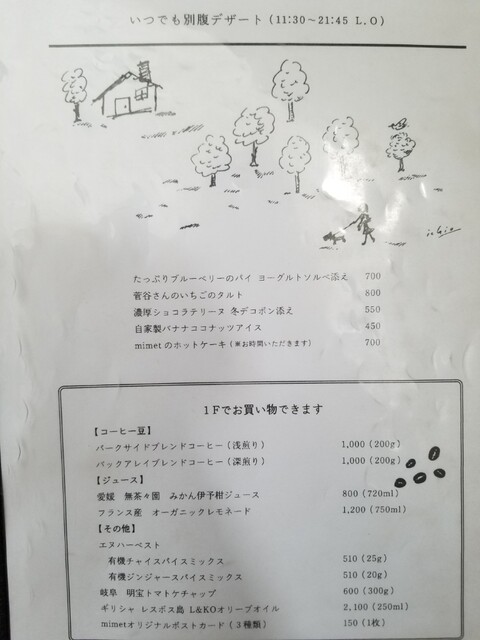 いつでも別腹デザート (11:30～21:45 L.O)
たっぷりブルーベリーのパイ ヨーグルトソルベ添え 700
菅谷さんのいちごのタルト 800
濃厚ショコラテリーヌ 冬デコポン添え 550
自家製バナナココナッツアイス 450
mimetのホットケーキ (※お時間いただきます) 700
1Fでお買い物できます
【コーヒー豆】
パークサイドブレンドコーヒー (浅煎り) 1,000 (200g)
バックアレイブレンドコーヒー (深煎り) 1,000 (200g)
【ジュース】
愛媛 無茶々園 みかん伊予柑ジュース 800 (720ml)
フランス産 オーガニックレモネード 1,200 (750ml)
【その他】
エヌハーベスト
有機チャイスパイスミックス 510 (25g)
有機ジンジャースパイスミックス 510 (20g)
岐阜 明宝トマトケチャップ 600 (300g)
ギリシャ レスボス島 L&KOオリーブオイル 2,100 (250ml)
mimetオリジナルポストカード (3種類) 150 (1枚)